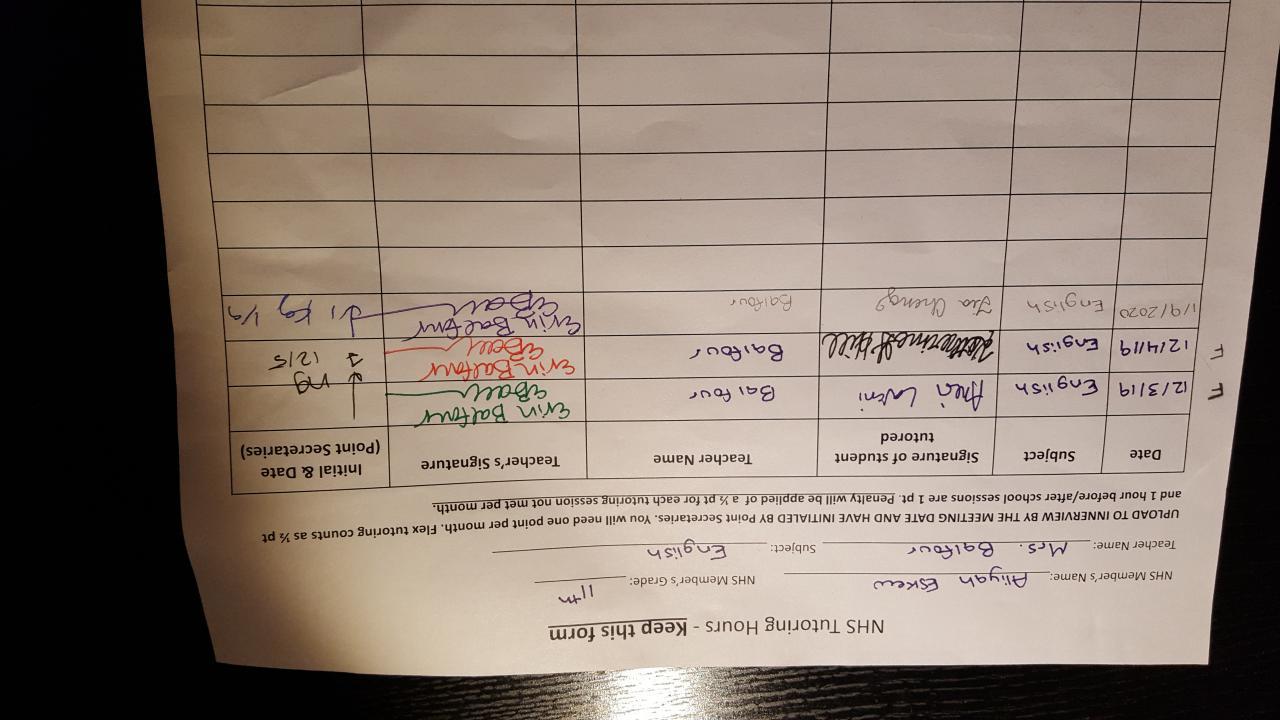 NHS Tutoring Hours - Keep this form
NHS Member's Name: Aliyah Eskew NHS Member's Grade: 11th
Teacher Name: Mrs. Balfour Subject: English
UPLOAD TO INNERVIEW BY THE MEETING DATE AND HAVE INITIALED BY Point Secretaries. You will need one point per month. Flex tutoring counts as ½ pt
and 1 hour before/after school sessions are 1 pt. Penalty will be applied of a ½ pt for each tutoring session not met per month.
Date Subject Signature of student tutored Teacher Name Teacher's Signature Initial & Date (Point Secretaries)
F 12/3/19 English Balfour Erin Balfour
F 12/4/19 English Hill Balfour Erin Balfour 12/5
1/9/2020 English Jia Cheng Balfour Erin Balfour 1/9